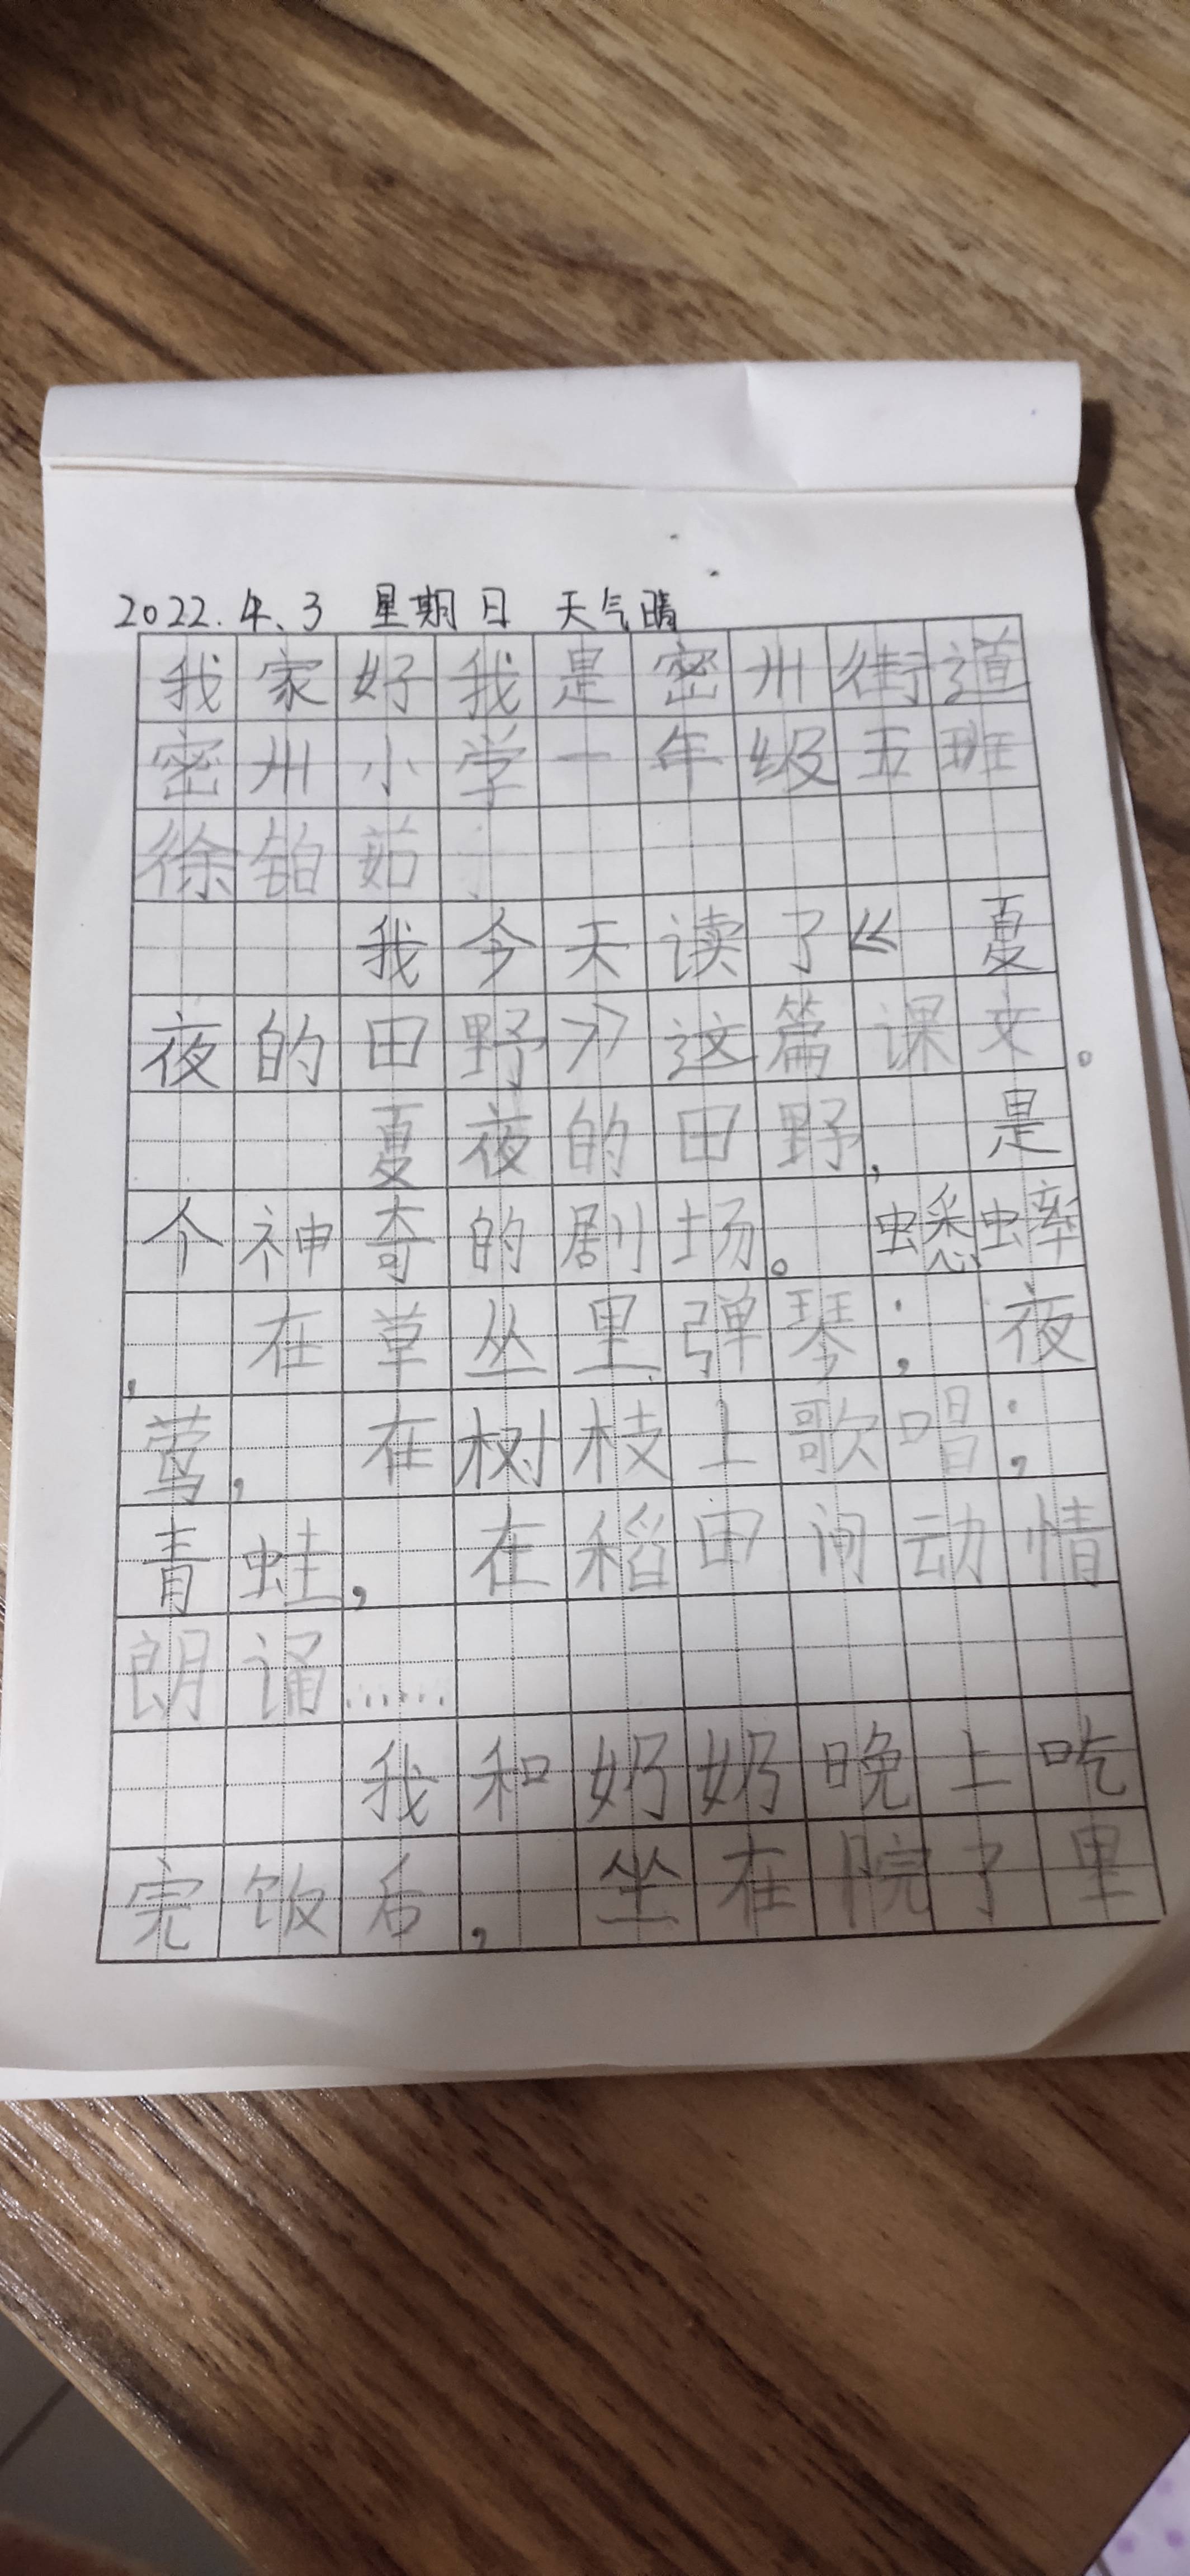 2022.4.3 星期日 天气晴
我家好我是密州街道
密州小学一年级五班
徐铂茹
我今天读了《夏
夜的田野》这篇课文。
夏夜的田野,是
个神奇的剧场。蟋蟀
,在草丛里弹琴;夜
莺,在树枝上歌唱;
青蛙,在稻田间动情
朗诵……
我和奶奶晚上吃
完饭后,坐在院了里